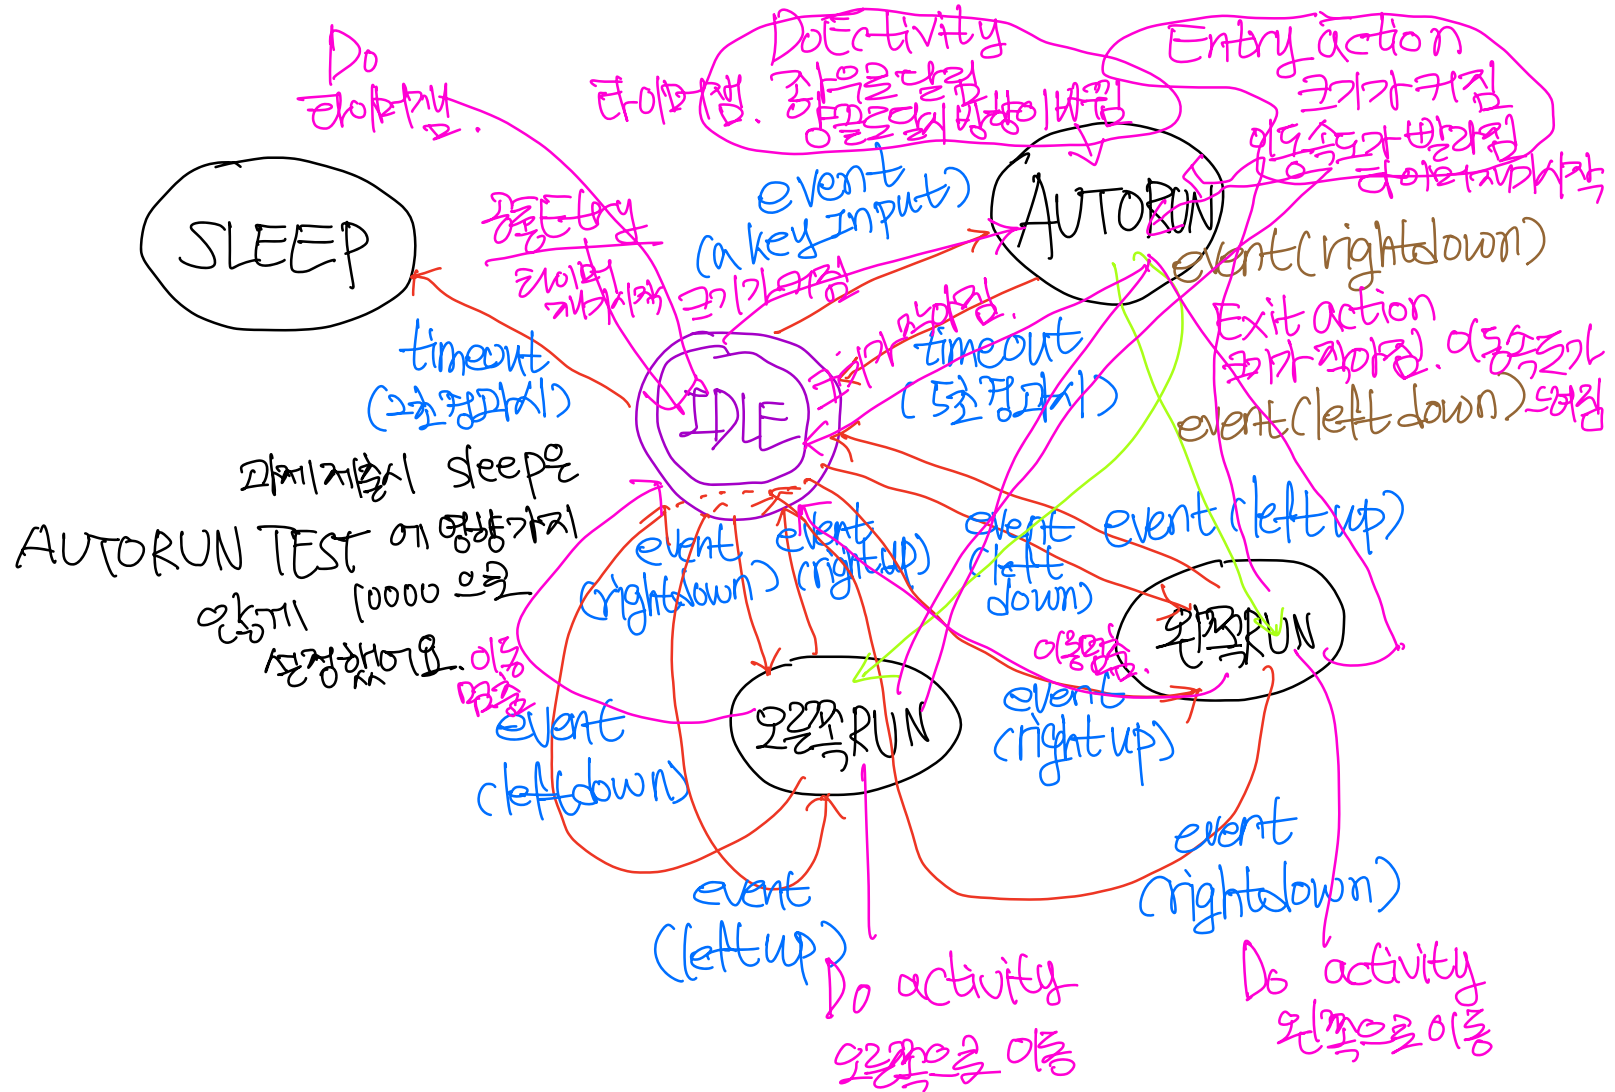 Do
타이머잼.
DoEctivity
타이머잼. 좌우로 달림
양끝로달시 방향이 바뀜
Entry action
크기가 커짐
이동속도가 빨라짐
타이머재가시작
SLEEP
공통Entry
타이머
재가시작
event
(a key Input)
크기가커짐
AUTORUN
event(rightdown)
Exit action
크기가 작아짐. 이동속도가
느려짐
event(left down)
timeout
(2초경과시)
IDLE
크기가 작아짐.
timeout
(5초경과시)
과제제출시 sleep은
AUTORUN TEST에 영향가지
않게 10000으로
설정했어요.
이동
멈춤
event
(rightdown)
event
(rightup)
event
(left
down)
event(leftup)
왼쪽RUN
이동멈춤.
오른쪽RUN
event
(leftdown)
event
(rightup)
event
(leftup)
event
(rightdown)
Do activity
오른쪽으로 이동
Do activity
왼쪽으로 이동